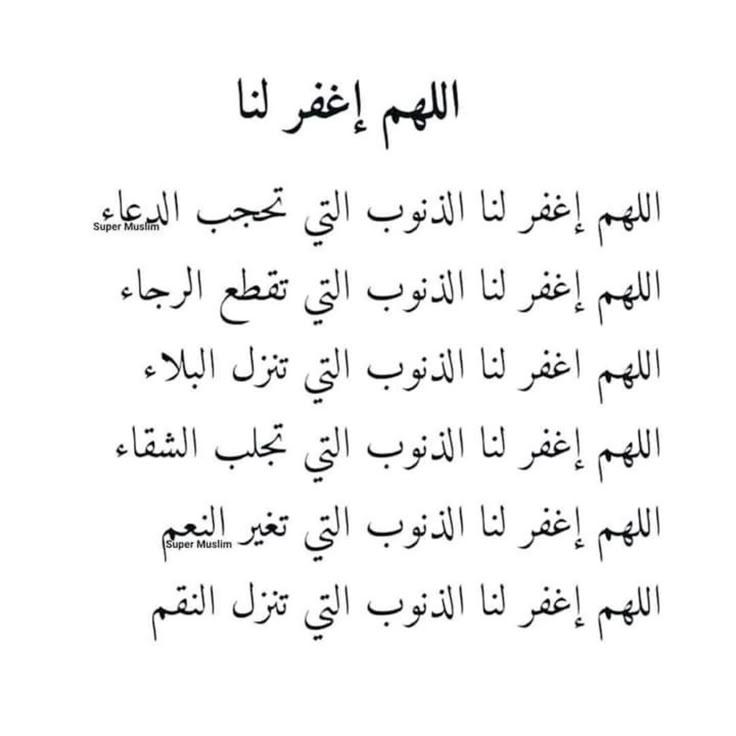 اللهم إغفر لنا
اللهم إغفر لنا الذنوب التي تحجب الدعاء
Super Muslim
اللهم إغفر لنا الذنوب التي تقطع الرجاء
اللهم اغفر لنا الذنوب التي تنزل البلاء
اللهم إغفر لنا الذنوب التي تجلب الشقاء
اللهم إغفر لنا الذنوب التي تغير النعم
Super Muslim
اللهم إغفر لنا الذنوب التي تنزل النقم